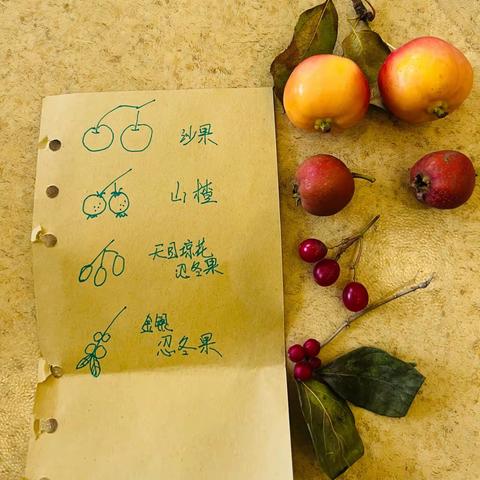 沙果
山楂
天目琼花
忍冬果
金银
忍冬果